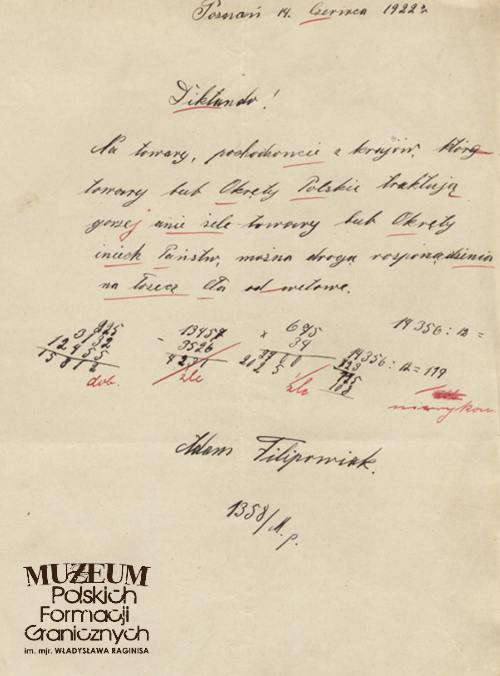 Poznań 14. Czerwca 1922r
Diktando!
Na towary, pochodzoncie z krajów, który
towary lub Okręty Polskie traktują
gorzej anie żele towary lub Okręty
iniech Państw, można drogą rosponądzinia
na łorzecz cła od wetowe.
3 925
32
12 455
15 812
dob.
- 13457
3526
4231
źle
x 695
34
źle
14 356 : 12 =
14 356 : 12 = 119
niewykon.
Adam Filipowiak.
1358/
MUZEUM
Polskich
Formacji
Granicznych
im. mjr. WŁADYSŁAWA RAGINISA